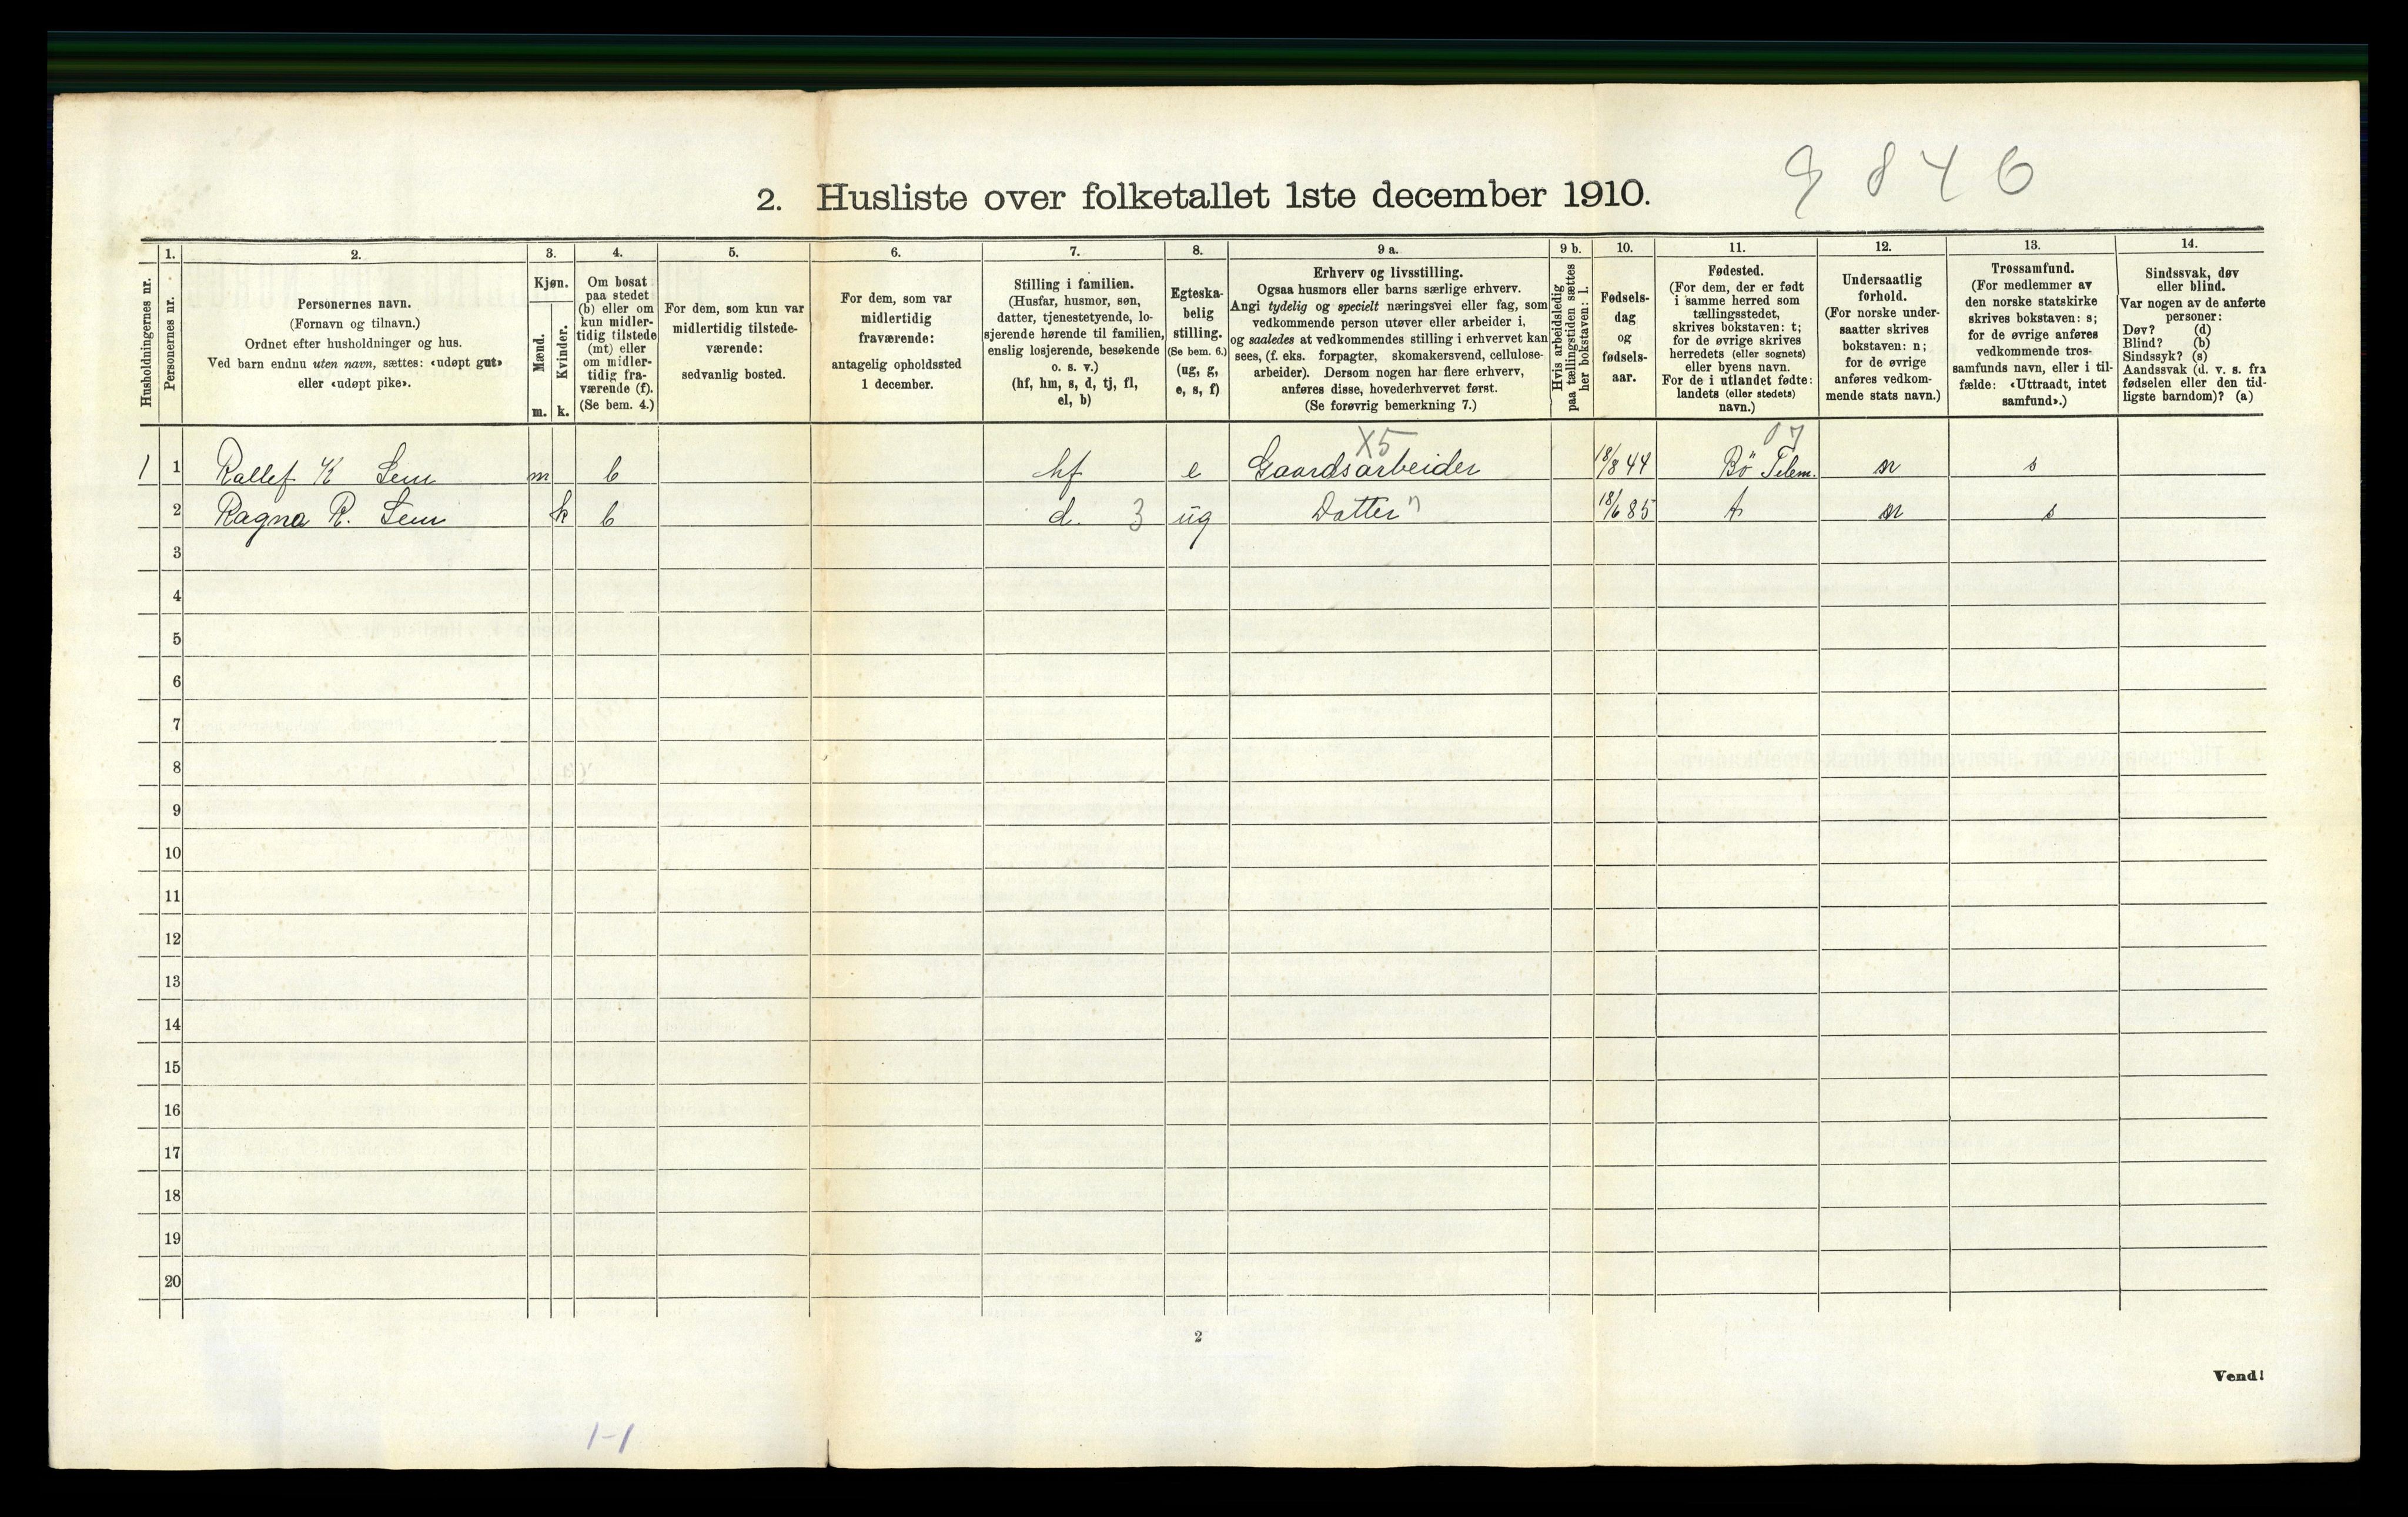 9 8 4 6
2. Husliste over folketallet 1ste december 1910.
Husholdningernes nr.
1.
Personernes nr.
2.
Personernes navn.
(Fornavn og tilnavn.)
Ordnet efter husholdninger og hus.
Ved barn endnu uten navn, sættes: «udøpt gut»
eller «udøpt pike».
3.
Kjøn.
Mænd.
m.
Kvinder.
k.
4.
Om bosat
paa stedet
(b) eller om
kun midler-
tidig tilstede
(mt) eller
om midler-
tidig fra-
værende (f).
(Se bem. 4.)
5.
For dem, som kun var
midlertidig tilstede-
værende:
sedvanlig bosted.
6.
For dem, som var
midlertidig
fraværende:
antagelig opholdssted
1 december.
7.
Stilling i familien.
(Husfar, husmor, søn,
datter, tjenestetyende, lo-
sjerende hørende til familien,
enslig losjerende, besøkende
o. s. v.)
(hf, hm, s, d, tj, fl,
el, b)
8.
Egteska-
belig
stilling.
(Se bem. 6.)
(ug, g,
e, s, f)
9 a.
Erhverv og livsstilling.
Ogsaa husmors eller barns særlige erhverv.
Angi tydelig og specielt næringsvei eller fag, som
vedkommende person utøver eller arbeider i,
og saaledes at vedkommendes stilling i erhvervet kan
sees, (f. eks. forpagter, skomakersvend, cellulose-
arbeider). Dersom nogen har flere erhverv,
anføres disse, hovederhvervet først.
(Se forøvrig bemerkning 7.)
9 b.
Hvis arbeidsledig
paa tællingstiden sættes
her bokstaven: l.
10.
Fødsels-
dag
og
fødsels-
aar.
11.
Fødested.
(For dem, der er født
i samme herred som
tællingsstedet,
skrives bokstaven: t;
for de øvrige skrives
herredets (eller sognets)
eller byens navn.
For de i utlandet fødte:
landets (eller stedets)
navn.)
12.
Undersaatlig
forhold.
(For norske under-
saatter skrives
bokstaven: n;
for de øvrige
anføres vedkom-
mende stats navn.)
13.
Trossamfund.
(For medlemmer av
den norske statskirke
skrives bokstaven: s;
for de øvrige anføres
vedkommende tros-
samfunds navn, eller i til-
fælde: «Uttraadt, intet
samfund».)
14.
Sindssvak, døv
eller blind.
Var nogen av de anførte
personer:
Døv? (d)
Blind? (b)
Sindssyk? (s)
Aandssvak (d. v. s. fra
fødselen eller den tid-
ligste barndom)? (a)
X5 07
1 1 Rallef K Sem m b hf e Gaardsarbeider 18/8 44 Bö Telem. n s
2 Ragna R. Sem k b d. 3 ug Datter " 18/6 85 t n s
3
4
5
6
7
8
9
10
11
12
13
14
15
16
17
18
19
20
2
Vend!
1-1